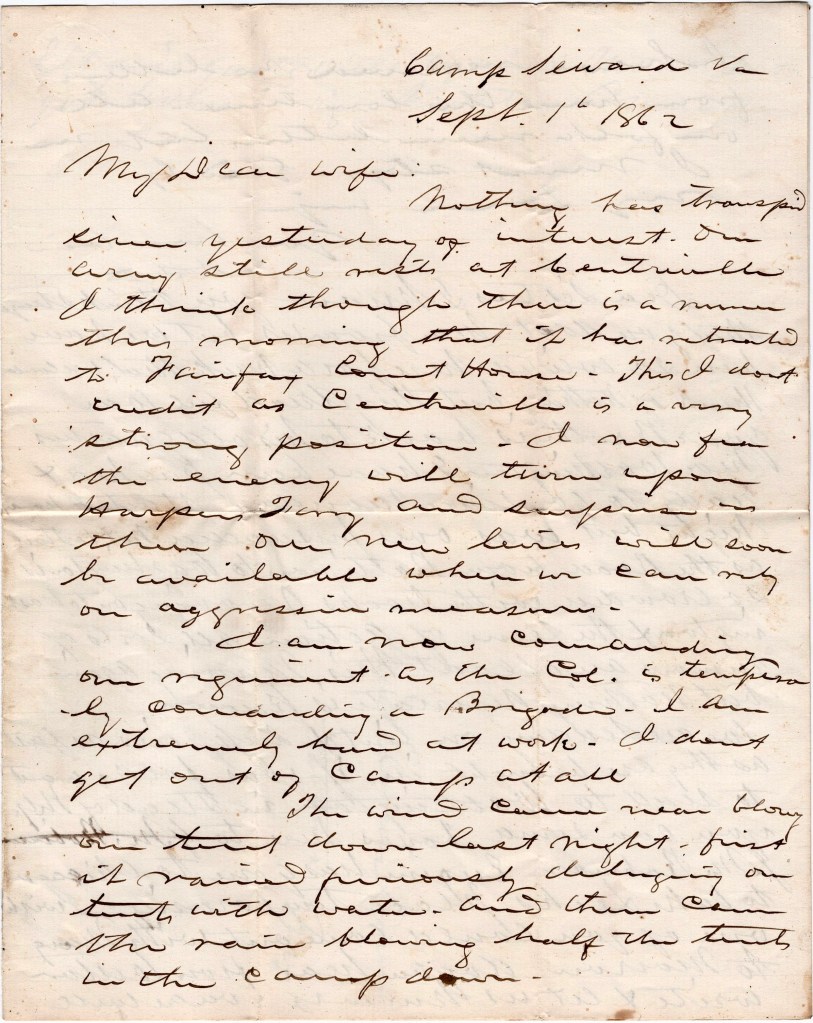 Camp Seward Va
Sept. 1st 1862
My Dear wife.
Nothing has transpir'd
since yesterday of interest. Our
army still rests at Centreville
I think though there is a rumor
this morning that it has retreated
to Fairfax Court House - This I dont
credit as Centreville is a very
strong position - I now fear
the enemy will turn upon
Harpers Ferry and surprise us
there Our new levies will soon
be available when we can rely
on aggressive measures -
I am now comanding
our regiment as the Col. is tempora
-ly comanding a Brigade - I am
extremely hard at work - I dont
get out of Camp at all
The wind came near blowing
our tent down last night - first
it rained furiously deluging our
tents with water - and then came
the rain blowing half the tents
in the camp down -